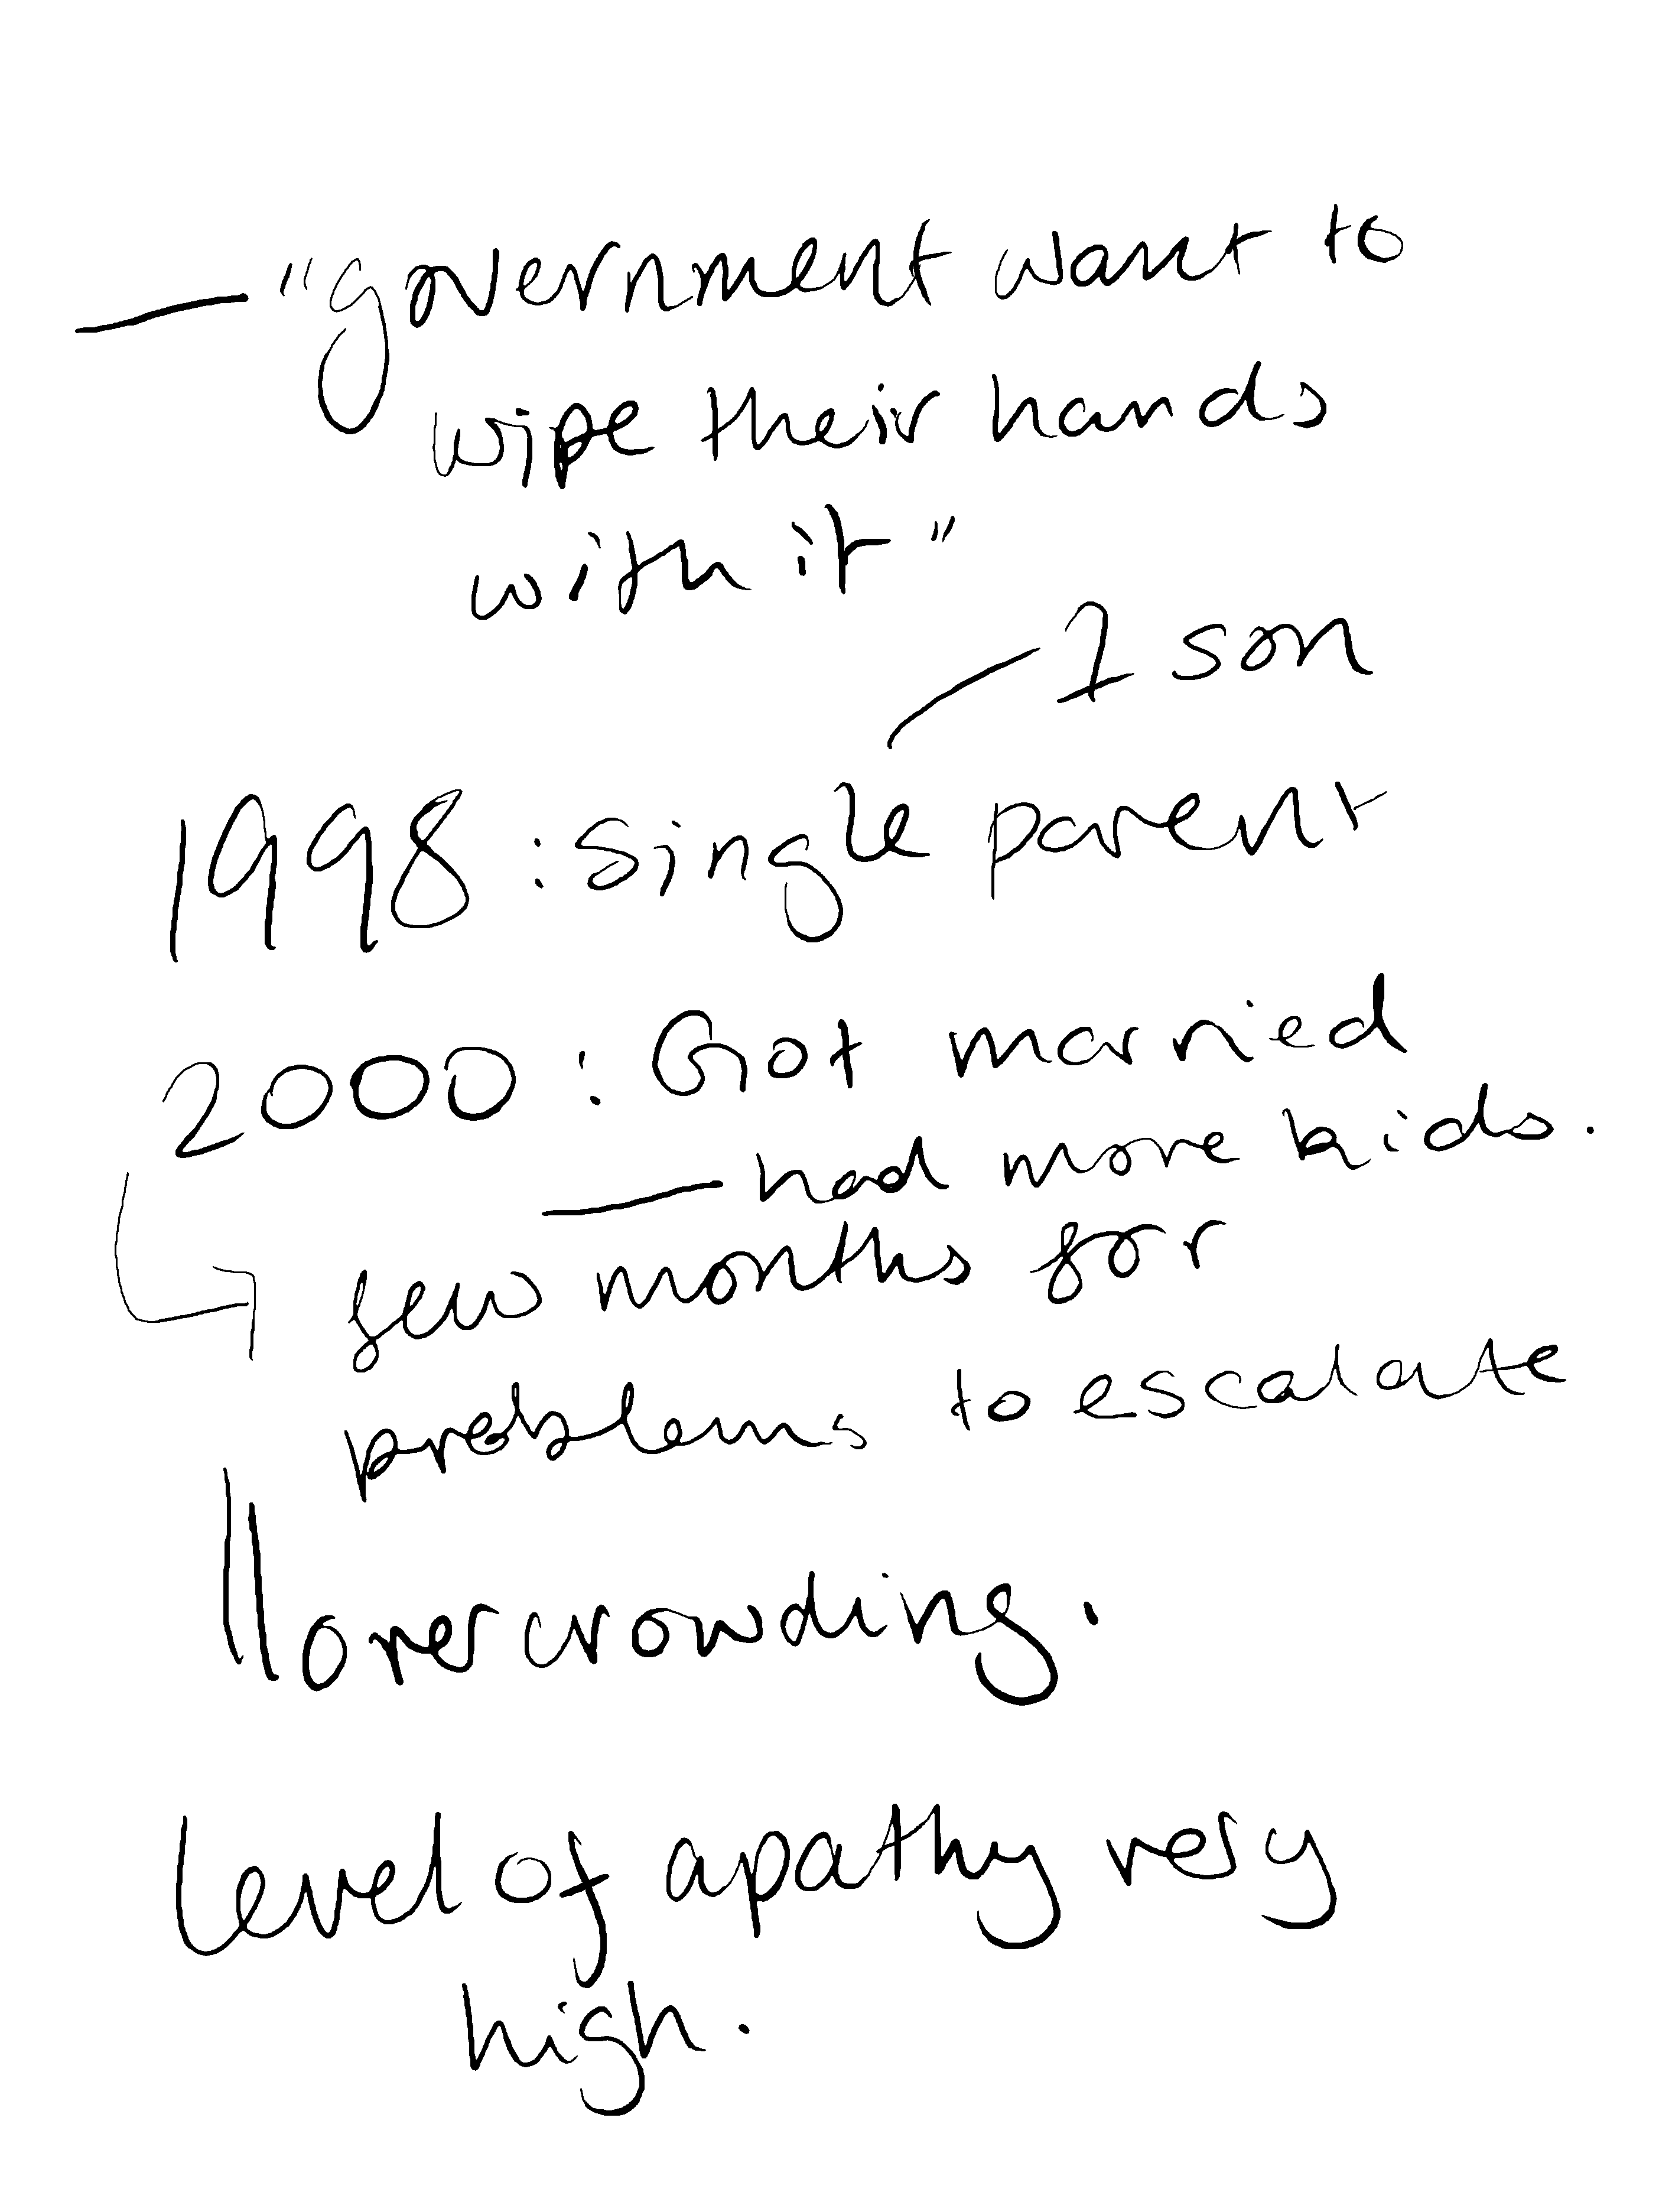 — "government want to
wipe their hands
with it"
— 1 son
1998 : single parent
2000 : Got married
— had more kids.
few months for
problems to escalate
overcrowding.
level of apathy very
high.